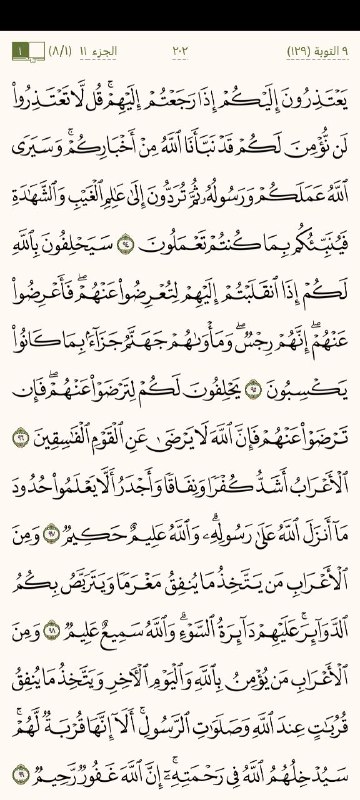 ٩ التوبة (١٢٩) ٢٠٢ الجزء ١١ (٨/١) ١
يَعْتَذِرُونَ إِلَيْكُمْ إِذَا رَجَعْتُمْ إِلَيْهِمْ ۚ قُل لَّا تَعْتَذِرُوا۟
لَن نُّؤْمِنَ لَكُمْ قَدْ نَبَّأَنَا ٱللَّهُ مِنْ أَخْبَارِكُمْ ۚ وَسَيَرَى
ٱللَّهُ عَمَلَكُمْ وَرَسُولُهُۥ ثُمَّ تُرَدُّونَ إِلَىٰ عَٰلِمِ ٱلْغَيْبِ وَٱلشَّهَٰدَةِ
فَيُنَبِّئُكُم بِمَا كُنتُمْ تَعْمَلُونَ ٩٤ سَيَحْلِفُونَ بِٱللَّهِ
لَكُمْ إِذَا ٱنقَلَبْتُمْ إِلَيْهِمْ لِتُعْرِضُوا۟ عَنْهُمْ ۖ فَأَعْرِضُوا۟
عَنْهُمْ ۖ إِنَّهُمْ رِجْسٌ ۖ وَمَأْوَىٰهُمْ جَهَنَّمُ جَزَآءًۢ بِمَا كَانُوا۟
يَكْسِبُونَ ٩٥ يَحْلِفُونَ لَكُمْ لِتَرْضَوْا۟ عَنْهُمْ ۖ فَإِن
تَرْضَوْا۟ عَنْهُمْ فَإِنَّ ٱللَّهَ لَا يَرْضَىٰ عَنِ ٱلْقَوْمِ ٱلْفَٰسِقِينَ ٩٦
ٱلْأَعْرَابُ أَشَدُّ كُفْرًا وَنِفَاقًا وَأَجْدَرُ أَلَّا يَعْلَمُوا۟ حُدُودَ
مَآ أَنزَلَ ٱللَّهُ عَلَىٰ رَسُولِهِۦ ۗ وَٱللَّهُ عَلِيمٌ حَكِيمٌ ٩٧ وَمِنَ
ٱلْأَعْرَابِ مَن يَتَّخِذُ مَا يُنفِقُ مَغْرَمًا وَيَتَرَبَّصُ بِكُمُ
ٱلدَّوَآئِرَ ۚ عَلَيْهِمْ دَآئِرَةُ ٱلسَّوْءِ ۗ وَٱللَّهُ سَمِيعٌ عَلِيمٌ ٩٨ وَمِنَ
ٱلْأَعْرَابِ مَن يُؤْمِنُ بِٱللَّهِ وَٱلْيَوْمِ ٱلْءَاخِرِ وَيَتَّخِذُ مَا يُنفِقُ
قُرُبَٰتٍ عِندَ ٱللَّهِ وَصَلَوَٰتِ ٱلرَّسُولِ ۚ أَلَآ إِنَّهَا قُرْبَةٌ لَّهُمْ ۚ
سَيُدْخِلُهُمُ ٱللَّهُ فِى رَحْمَتِهِۦٓ ۗ إِنَّ ٱللَّهَ غَفُورٌ رَّحِيمٌ ٩٩